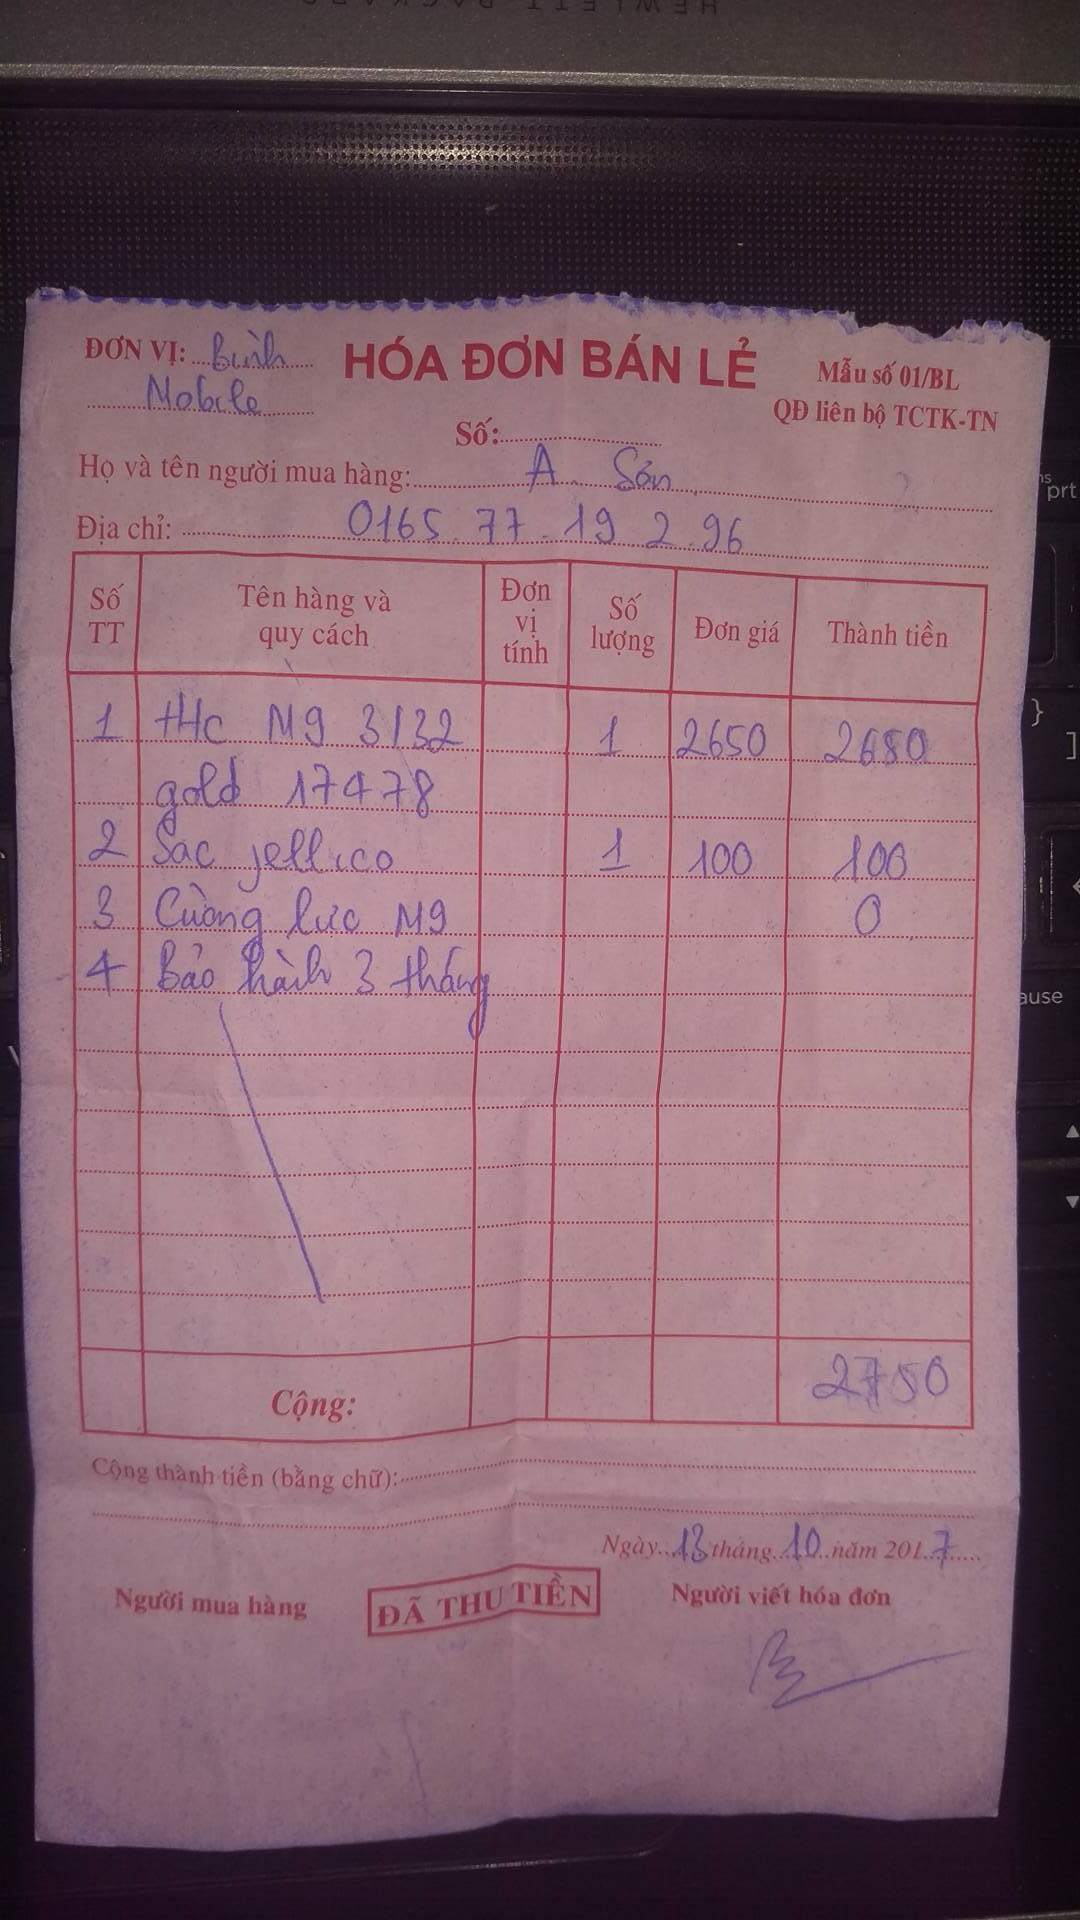 HEWLETT PACKARD
ĐƠN VỊ: Bình HÓA ĐƠN BÁN LẺ Mẫu số 01/BL
Mobile QĐ liên bộ TCTK-TN
Số:
Họ và tên người mua hàng: A. Sơn
Địa chỉ: 0165.77.19 2.96
Số TT Tên hàng và quy cách Đơn vị tính Số lượng Đơn giá Thành tiền
1 HTC M9 3/32 1 2650 2650
gold 17478
2 Sạc jellico 1 100 100
3 Cường lực M9 0
4 Bảo hành 3 tháng
Cộng: 2750
Cộng thành tiền (bằng chữ):
Ngày 13 tháng 10 năm 2017
Người mua hàng ĐÃ THU TIỀN Người viết hóa đơn
prt
}
]
ause